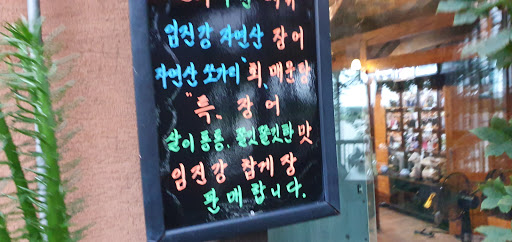 임진강 자연산 장어
자연산 쏘가리 회, 매운탕
"특, 장어
살이 통통, 쫄깃쫄깃한 맛
임진강 참게장
판매합니다.